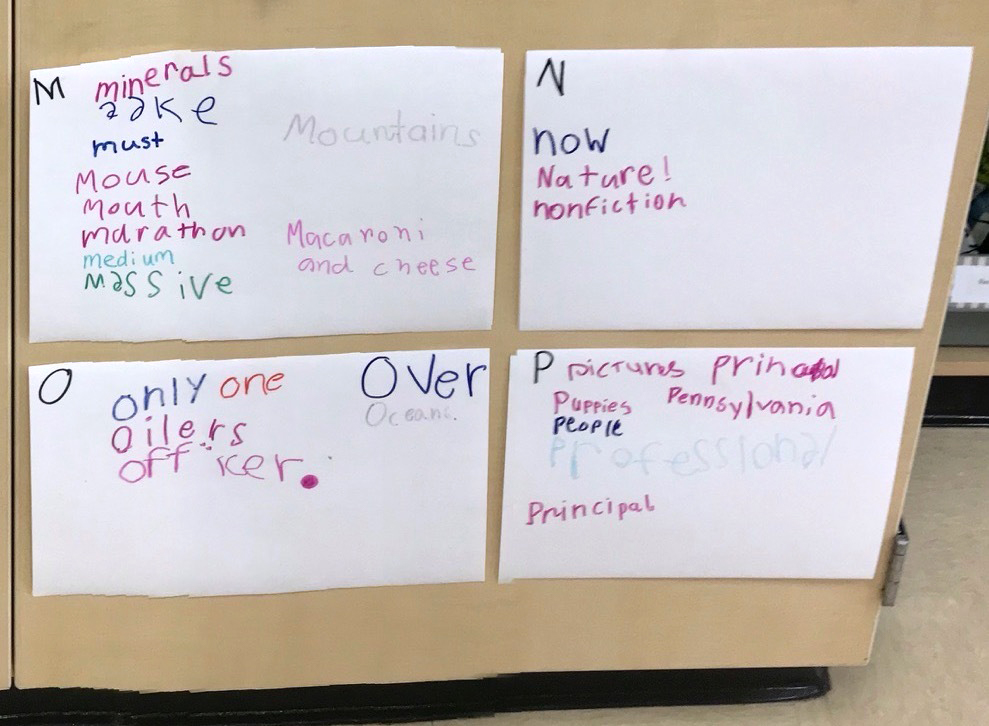 M minerals
must
Mountains
Mouse
Mouth
marathon
medium
Massive
Macaroni
and cheese
N
now
Nature!
nonfiction
O
only one
Over
Oceans.
Oilers
officer.
P pictures
Puppies
Pennsylvania
People
Professional
Principal